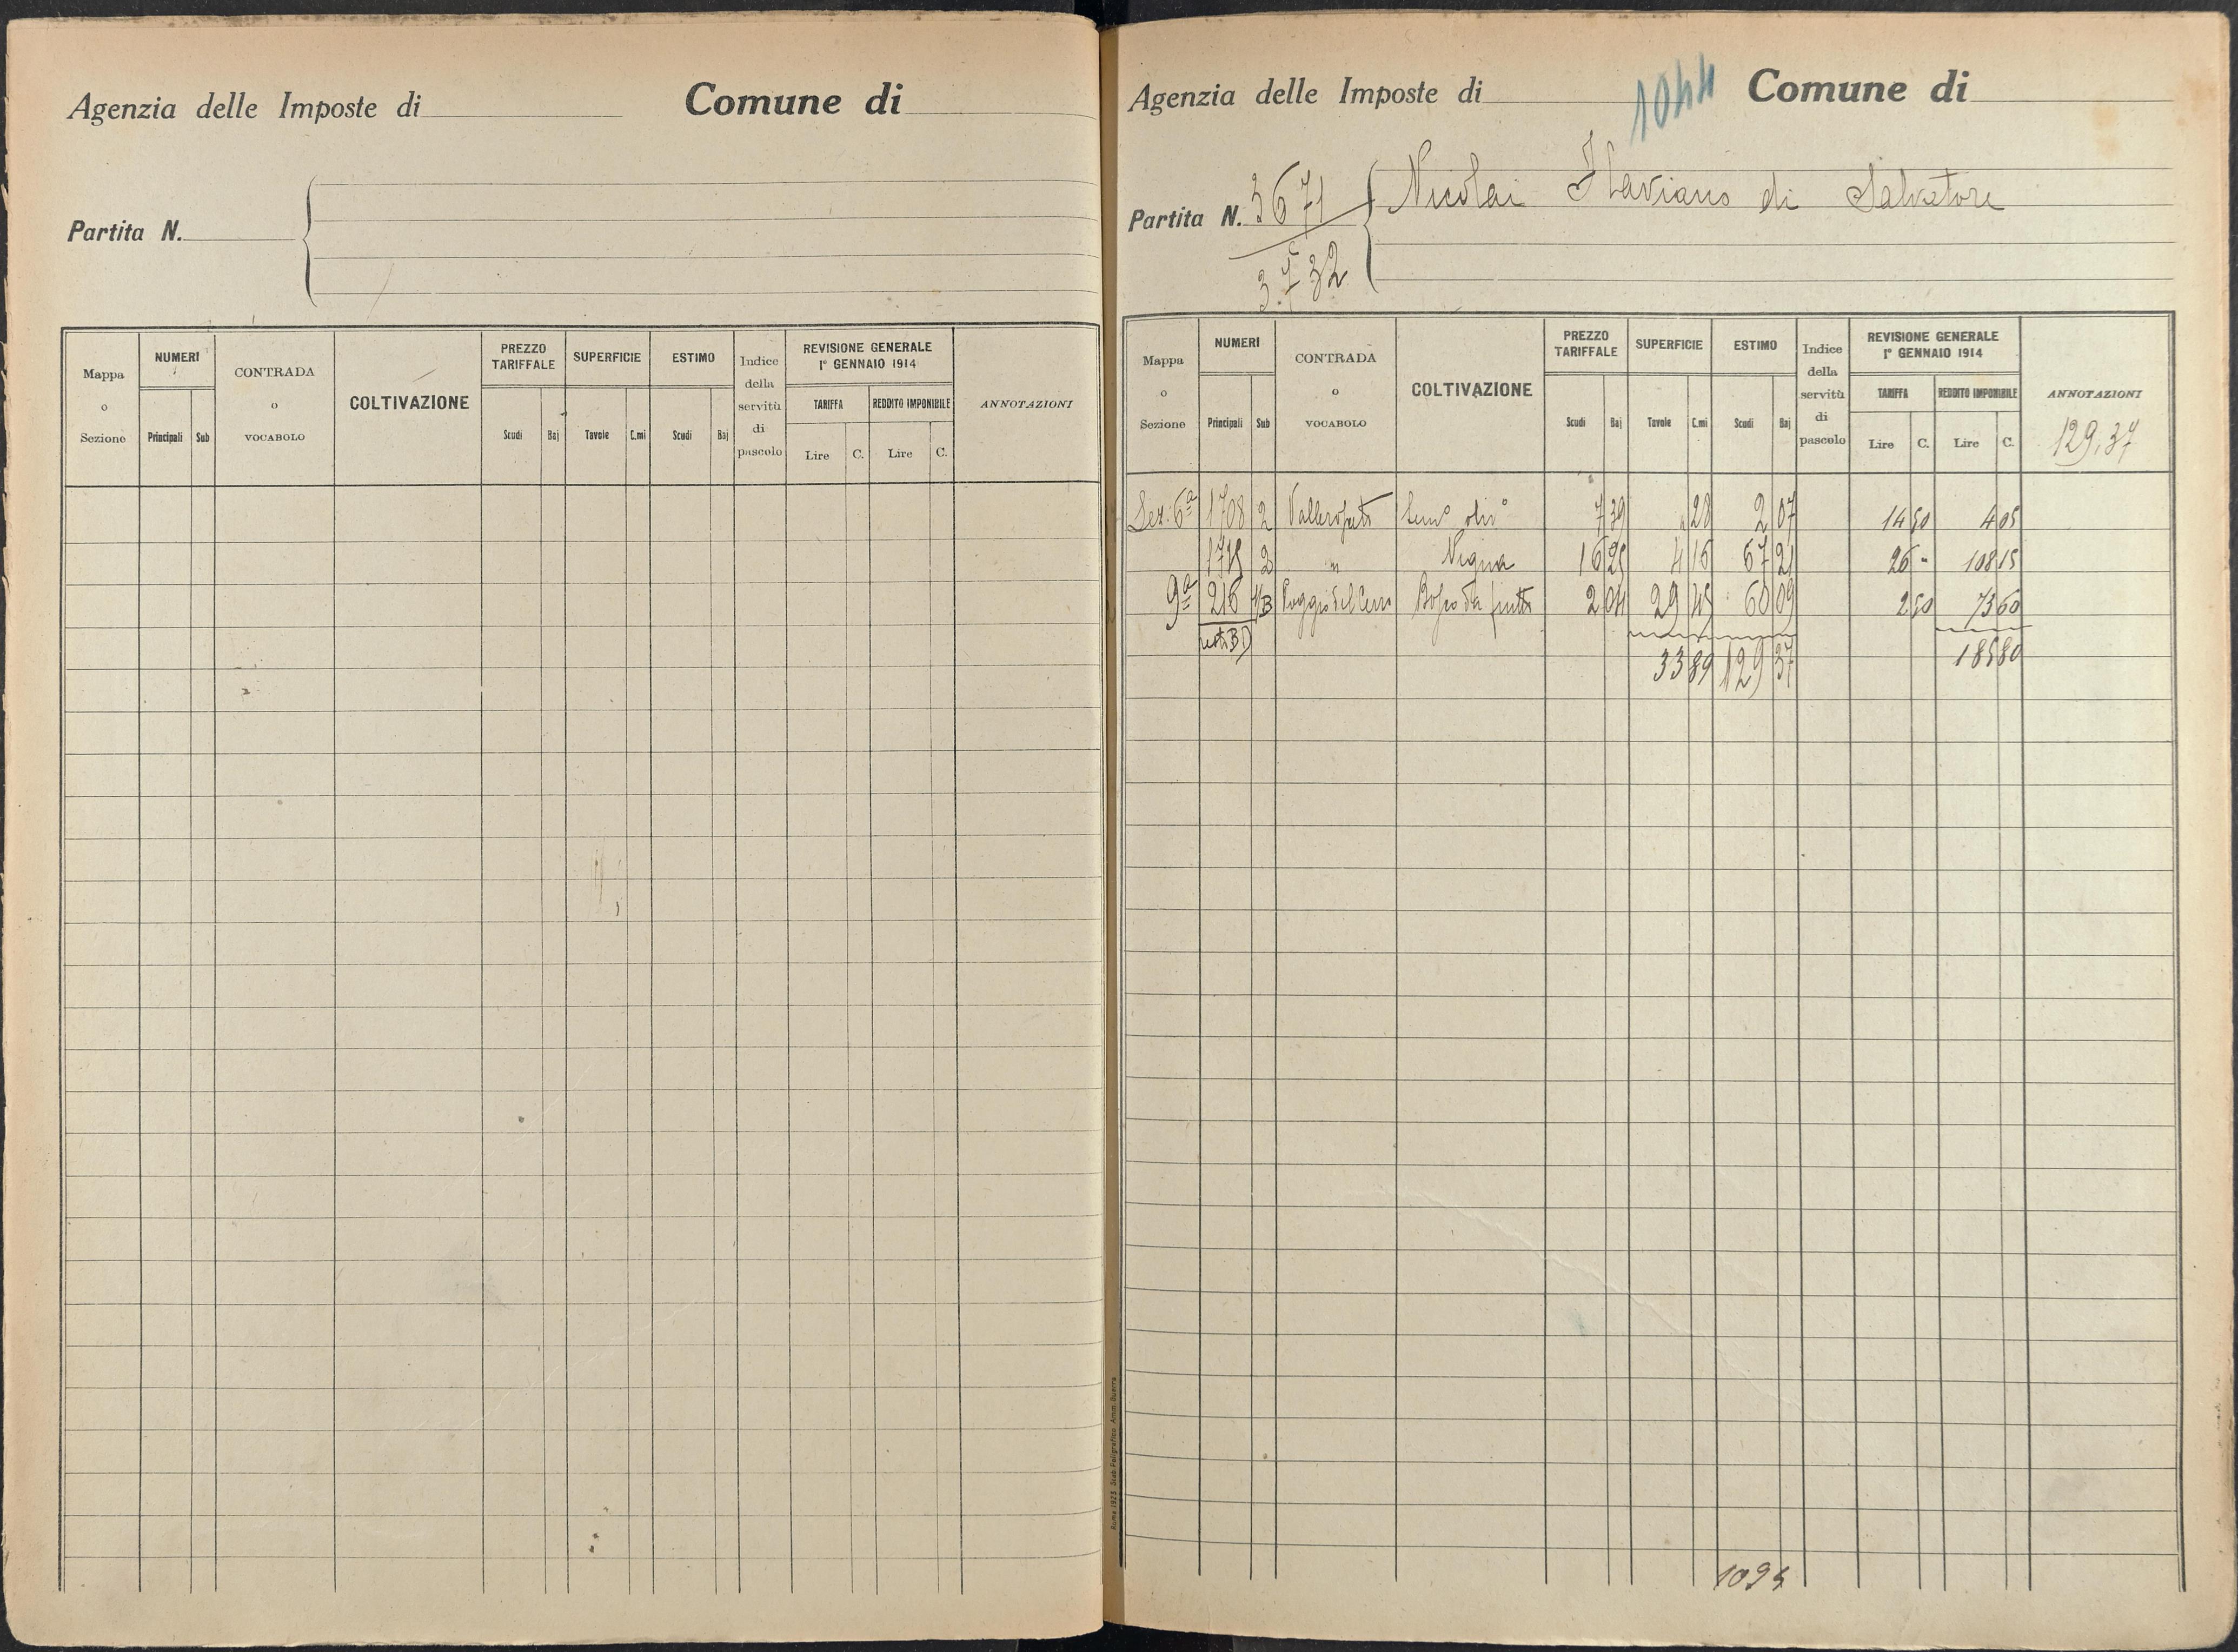 Agenzia delle Imposte di Comune di
Partita N.
Mappa o Sezione NUMERI Principali Sub CONTRADA o VOCABOLO COLTIVAZIONE PREZZO TARIFFALE Scudi Baj SUPERFICIE Tavole C.mi ESTIMO Scudi Baj Indice della servitù di pascolo REVISIONE GENERALE 1° GENNAIO 1914 TARIFFA Lire C. REDDITO IMPONIBILE Lire C. ANNOTAZIONI
Agenzia delle Imposte di 1044 Comune di
Partita N. 3671 Nicolai Flaviano di Salvatore
3.732
Mappa o Sezione NUMERI Principali Sub CONTRADA o VOCABOLO COLTIVAZIONE PREZZO TARIFFALE Scudi Baj SUPERFICIE Tavole C.mi ESTIMO Scudi Baj Indice della servitù di pascolo REVISIONE GENERALE 1° GENNAIO 1914 TARIFFA Lire C. REDDITO IMPONIBILE Lire C. ANNOTAZIONI
129,37
Sez. 6ª 1708 2 Sem° oliv° 7 39 " 28 2 07 14 50 4 05
1715 2 " Vigna 16 25 4 16 67 21 26 " 108 15
9ª 216 1/B Poggio del Cerro Bosco da frutto 2 04 29 45 60 09 2 50 73 60
33 89 129 37 185 80
1095
Roma 1923 Stab. Poligrafico Amm. Guerra